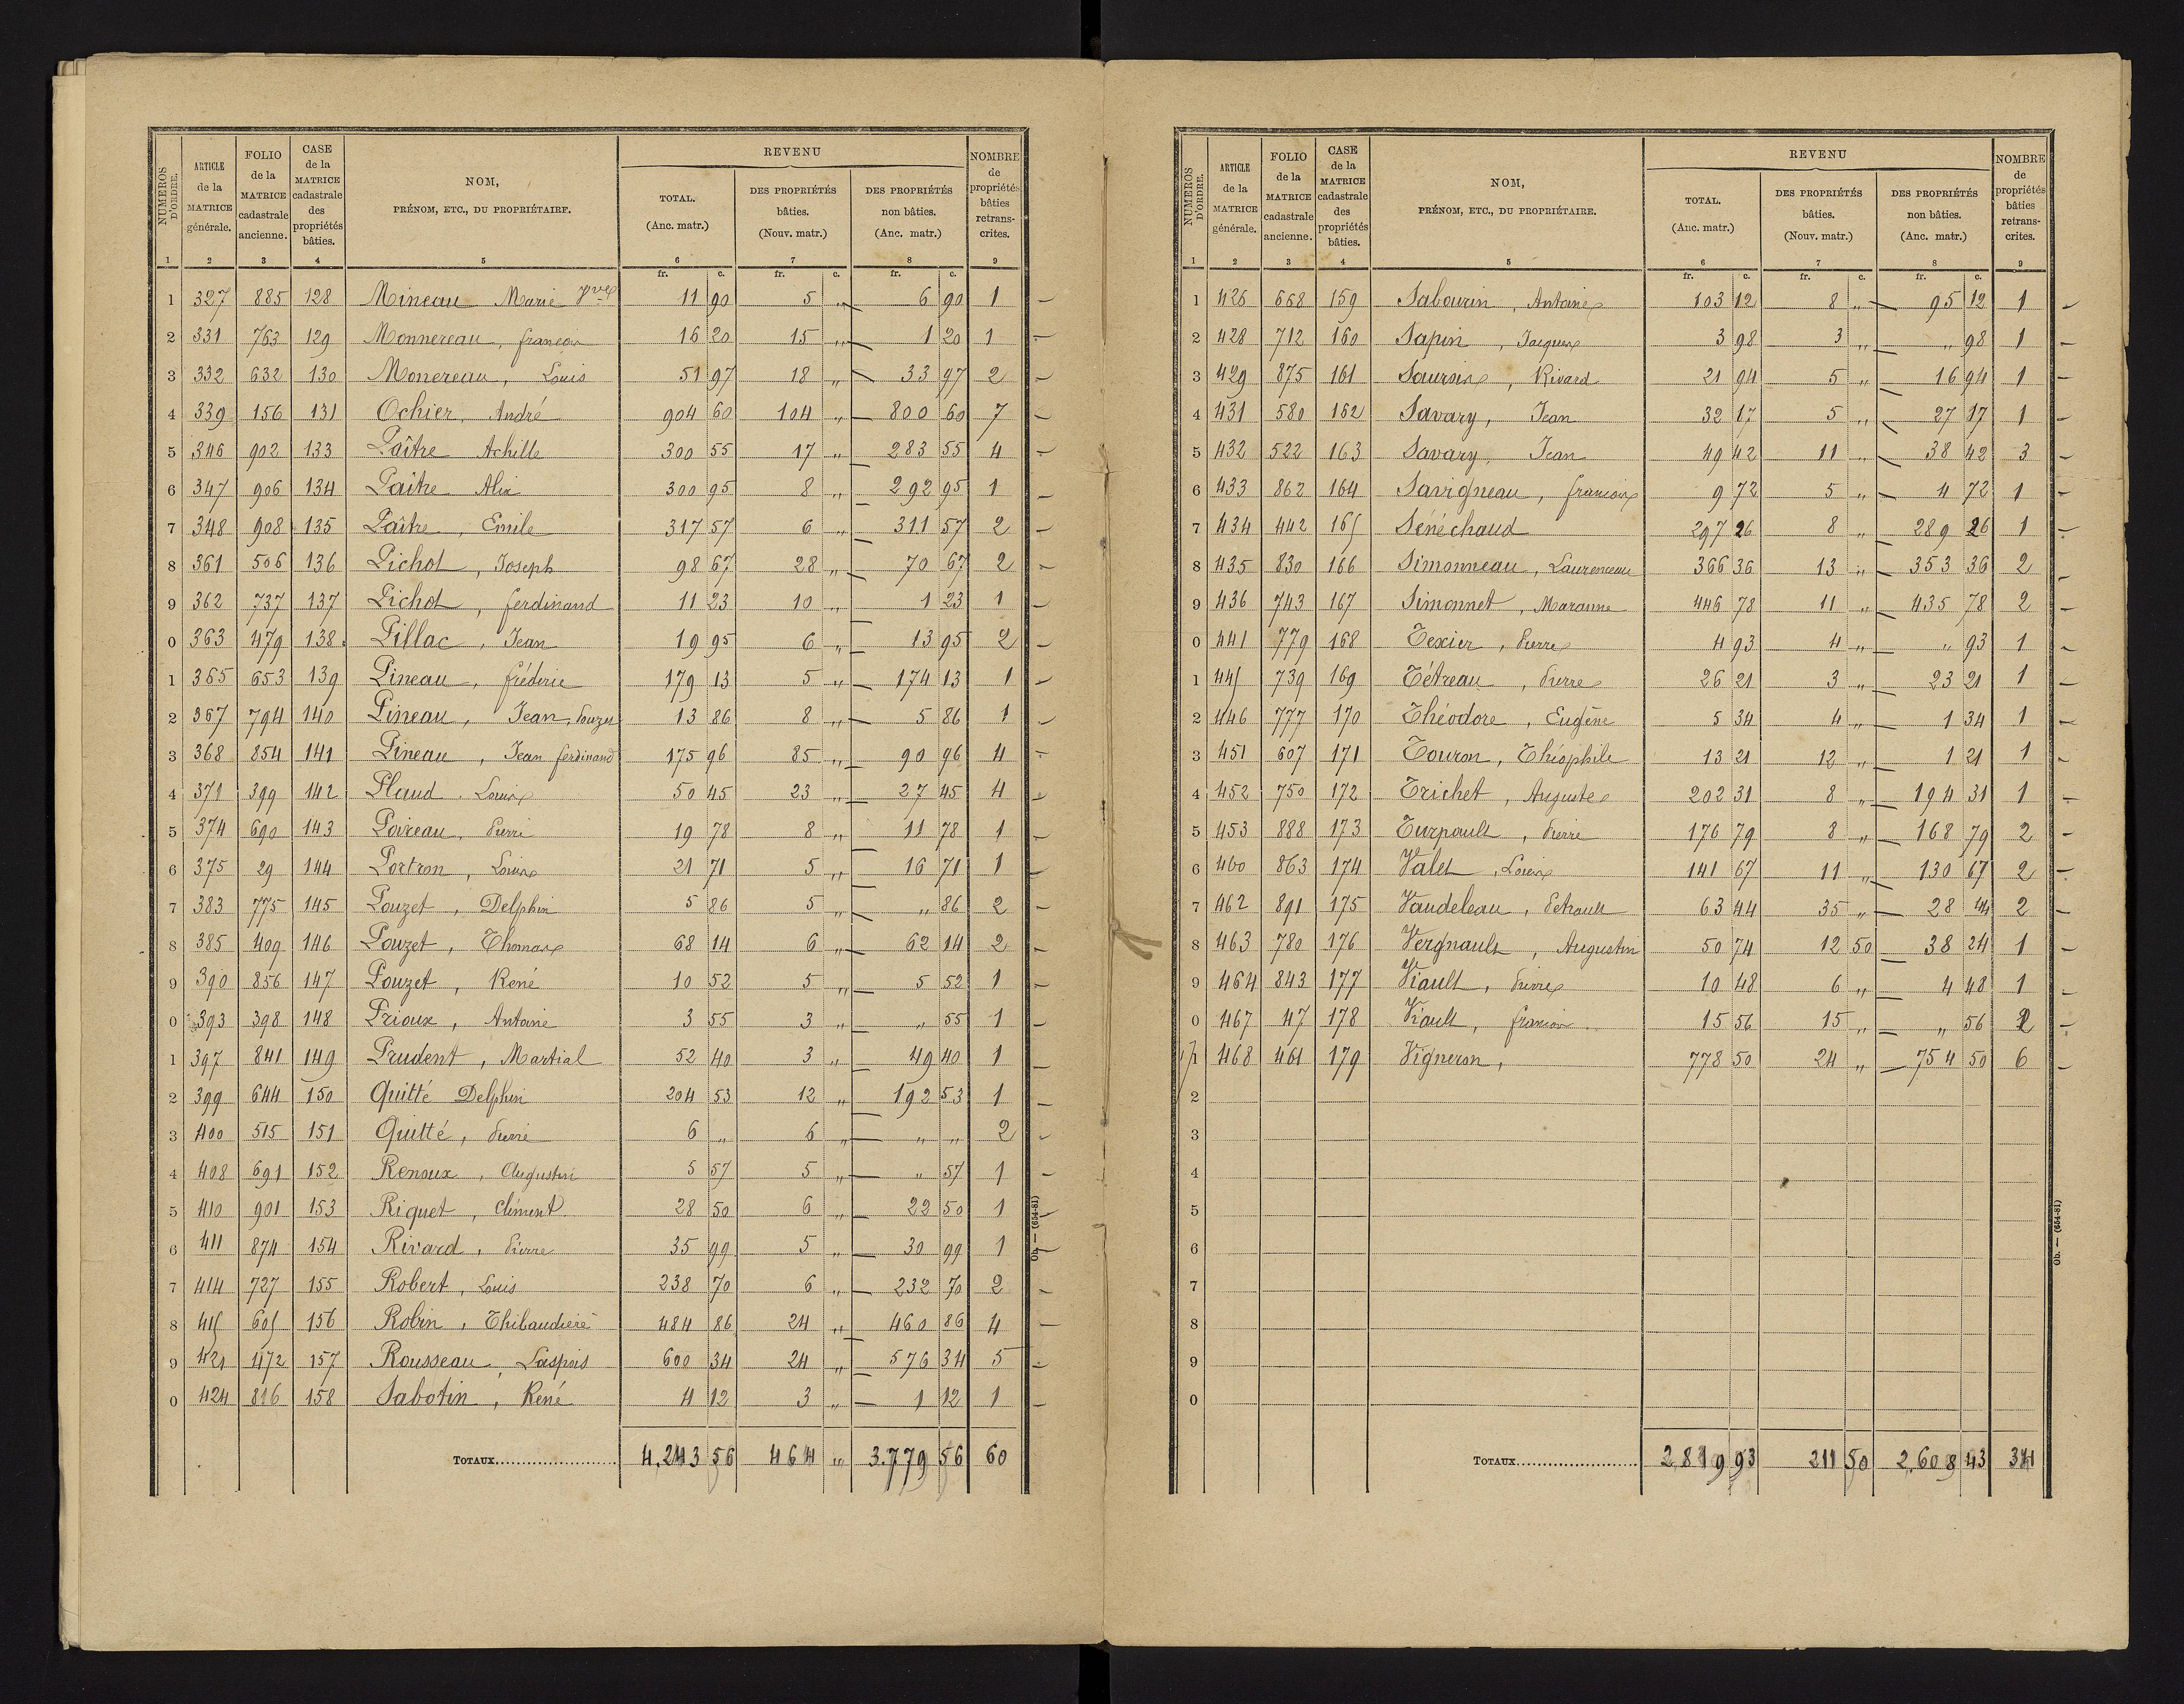 NUMÉROS D'ORDRE. | ARTICLE de la MATRICE générale. | FOLIO de la MATRICE cadastrale ancienne. | CASE de la MATRICE cadastrale des propriétés bâties. | NOM, PRÉNOM, ETC., DU PROPRIÉTAIRE. | REVENU | NOMBRE de propriétés bâties retranscrites.
TOTAL. (Anc. matr.) | DES PROPRIÉTÉS bâties. (Nouv. matr.) | DES PROPRIÉTÉS non bâties. (Anc. matr.)
1 2 3 4 5 6 7 8 9
fr. c. fr. c. fr. c.
1 327 885 128 Mineau Marie Vve 11 90 5 " 6 90 1
2 331 763 129 Monnereau, françois 16 20 15 " 1 20 1
3 332 632 130 Monereau, Louis 51 97 18 " 33 97 2
4 339 156 131 Ochier, André 904 60 104 " 800 60 7
5 346 902 133 Paître Achille 300 55 17 " 283 55 4
6 347 906 134 Paître Alix 300 95 8 " 292 95 1
7 348 908 135 Paître, Emile 317 57 6 " 311 57 2
8 361 506 136 Pichot, Joseph 98 67 28 " 70 67 2
9 362 737 137 Pichot, ferdinand 11 23 10 " 1 23 1
0 363 479 138 Pillac, Jean 19 95 6 " 13 95 2
1 365 653 139 Pineau, fréderic 179 13 5 " 174 13 1
2 367 794 140 Pineau, Jean, Pouzet 13 86 8 " 5 86 1
3 368 854 141 Pineau, Jean ferdinand 175 96 85 " 90 96 4
4 371 399 142 Plaud, Louis 50 45 23 " 27 45 4
5 374 690 143 Poireau, Pierre 19 78 8 " 11 78 1
6 375 29 144 Portron, Louis 21 71 5 " 16 71 1
7 383 775 145 Pouzet, Delphin 5 86 5 " " 86 2
8 385 409 146 Pouzet, Thomas 68 14 6 " 62 14 2
9 390 856 147 Pouzet, René 10 52 5 " 5 52 1
0 393 398 148 Prioux, Antoine 3 55 3 " " 55 1
1 397 841 149 Prudent, Martial 52 40 3 " 49 40 1
2 399 644 150 Quitté Delphin 204 53 12 " 192 53 1
3 400 515 151 Quitté, Pierre 6 " 6 " " " 2
4 408 691 152 Renoux, Augustin 5 57 5 " " 57 1
5 410 901 153 Riquet, Clément 28 50 6 " 22 50 1
6 411 874 154 Rivard, Pierre 35 99 5 " 30 99 1
7 414 727 155 Robert, Louis 238 70 6 " 232 70 2
8 415 605 156 Robin, Thibaudière 484 86 24 " 460 86 4
9 421 472 157 Rousseau, Laspois 600 34 24 " 576 34 5
0 424 816 158 Sabotin, René 4 12 3 " 1 12 1
TOTAUX 4.243 56 464 " 3.779 56 60
Ob. — (654-81)
NUMÉROS D'ORDRE. | ARTICLE de la MATRICE générale. | FOLIO de la MATRICE cadastrale ancienne. | CASE de la MATRICE cadastrale des propriétés bâties. | NOM, PRÉNOM, ETC., DU PROPRIÉTAIRE. | REVENU | NOMBRE de propriétés bâties retranscrites.
TOTAL. (Anc. matr.) | DES PROPRIÉTÉS bâties. (Nouv. matr.) | DES PROPRIÉTÉS non bâties. (Anc. matr.)
1 2 3 4 5 6 7 8 9
fr. c. fr. c. fr. c.
1 426 668 159 Sabourin, Antoine 103 12 8 " 95 12 1
2 428 712 160 Sapin, Jacques 3 98 3 " " 98 1
3 429 875 161 Sauroin, Rivard 21 94 5 " 16 94 1
4 431 580 162 Savary, Jean 32 17 5 " 27 17 1
5 432 522 163 Savary, Jean 49 42 11 " 38 42 3
6 433 862 164 Savigneau, françois 9 72 5 " 4 72 1
7 434 442 165 Sénéchaud 297 26 8 " 289 26 1
8 435 830 166 Simonneau, Laurenceau 366 36 13 " 353 36 2
9 436 743 167 Simonnet, Maranne 446 78 11 " 435 78 2
0 441 779 168 Texier, Pierre 4 93 4 " " 93 1
1 445 739 169 Tétreau, Pierre 26 21 3 " 23 21 1
2 446 777 170 Théodore, Eugène 5 34 4 " 1 34 1
3 451 607 171 Touron, Théophile 13 21 12 " 1 21 1
4 452 750 172 Trichet, Auguste 202 31 8 " 194 31 1
5 453 888 173 Turpault, Pierre 176 79 8 " 168 79 2
6 460 863 174 Valet, Louis 141 67 11 " 130 67 2
7 462 891 175 Vaudeleau, Pétrault 63 44 35 " 28 44 2
8 463 780 176 Vergnault, Augustin 50 74 12 50 38 24 1
9 464 843 177 Viault, Pierre 10 48 6 " 4 48 1
0 467 47 178 Viault, françois 15 56 15 " " 56 2
1 468 461 179 Vigneron, 778 50 24 " 754 50 6
2
3
4
5
6
7
8
9
0
TOTAUX 2,819 93 211 50 2,608 43 34
Ob. — (654-81)